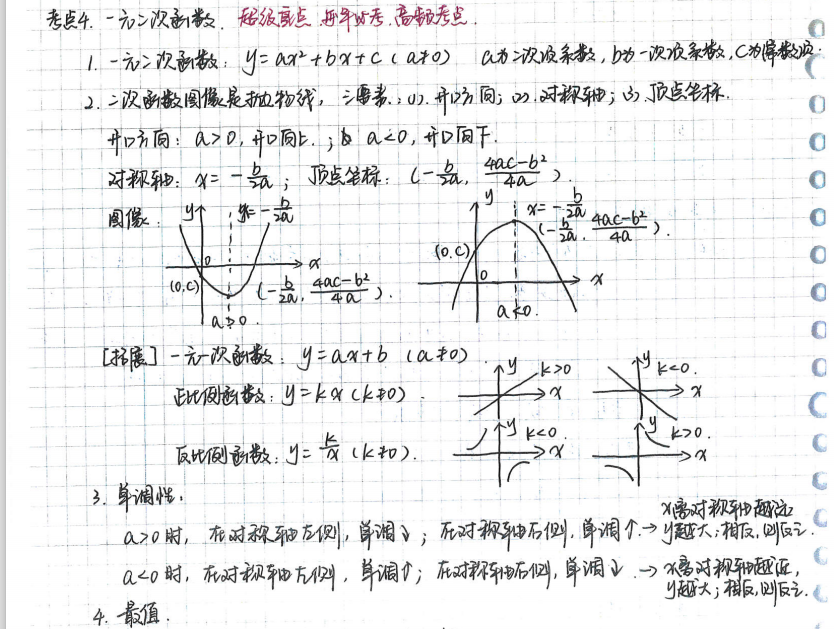 考点4. 一元二次函数. 超级重点 每年必考. 高频考点.
1. 一元二次函数: y=ax²+bx+c (a≠0) a为二次项系数, b为一次项系数, C为常数项.
2. 二次函数图像是抛物线, 三要素: (1). 开口方向; (2). 对称轴; (3). 顶点坐标.
开口方向: a>0, 开口向上.; a<0, 开口向下.
对称轴: x=-b/2a; 顶点坐标: (-b/2a, 4ac-b²/4a).
图像.
y
x=-b/2a
0
x
(0,C)
(-b/2a, 4ac-b²/4a).
a>0.
y
x=-b/2a
(-b/2a, 4ac-b²/4a).
(0,C)
0
x
a<0.
[拓展] 一元一次函数: y=ax+b (a≠0).
正比例函数: y=kx (k≠0).
y k>0 x
y k<0. x
反比例函数: y=k/x (k≠0).
y k<0. x
y k>0. x
3. 单调性:
a>0时, 在对称轴左侧, 单调↓; 在对称轴右侧, 单调↑. → x离对称轴越远
y越大; 相反, 则反之.
a<0时, 在对称轴左侧, 单调↑; 在对称轴右侧, 单调↓. → x离对称轴越近,
y越大; 相反, 则反之.
4. 最值.